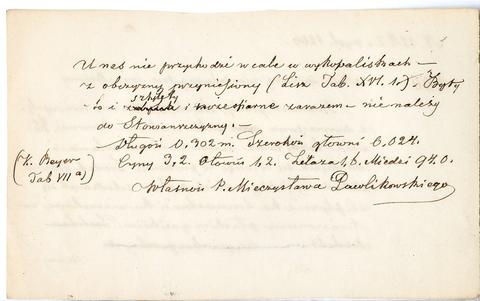 U nas nie przychodzi wcale w wykopaliskach –
z obczyzny przyniesiony (Lisz Tab. XVI. 1.). Byłby
to i sztylety i narzesiane zarazem – nie należy
do Stowarzyszyny. –
Długość 0.302 m. Szerokość głowni 0.024.
Cyny 3,2. Ołowiu 1.2. Żelaza 1,6. Miedzi 94.0.
Własność P. Mieczysława Pawlikowskiego
(K. Beyer
Tab VII a)